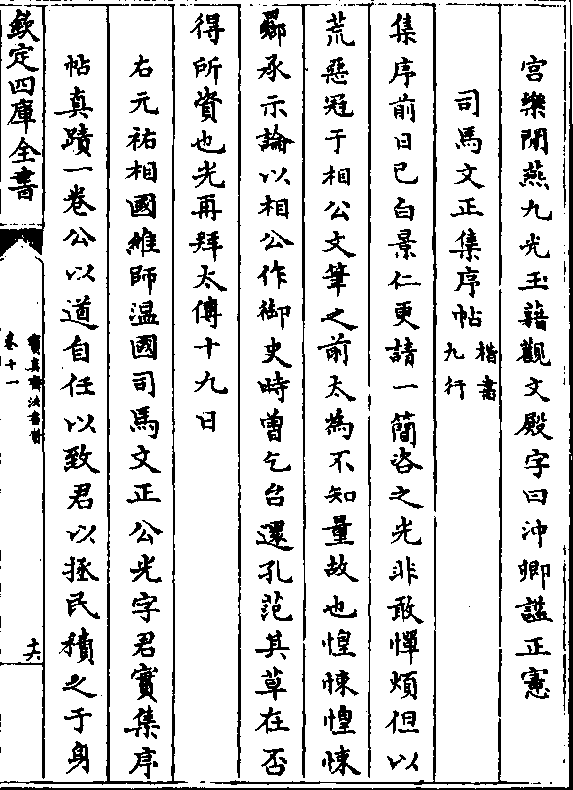 宫樂閒燕九光玉藉觀文殿字曰沖卿諡正憲
司馬文正集序帖楷書九行
集序前日已白景仁更請一簡咨之光非敢憚煩但以
荒惡冠于相公文筆之前太為不知量故也惶悚惶悚
曏承示論以相公作御史時曾乞台還孔范其草在否
得所資也光再拜太傅十九日
右元祐相國維師温國司馬文正公光字君實集序
帖真蹟一卷公以道自任以致君以拯民積之于身
欽定四庫全書
寳真齋法書贊
卷十一
十六